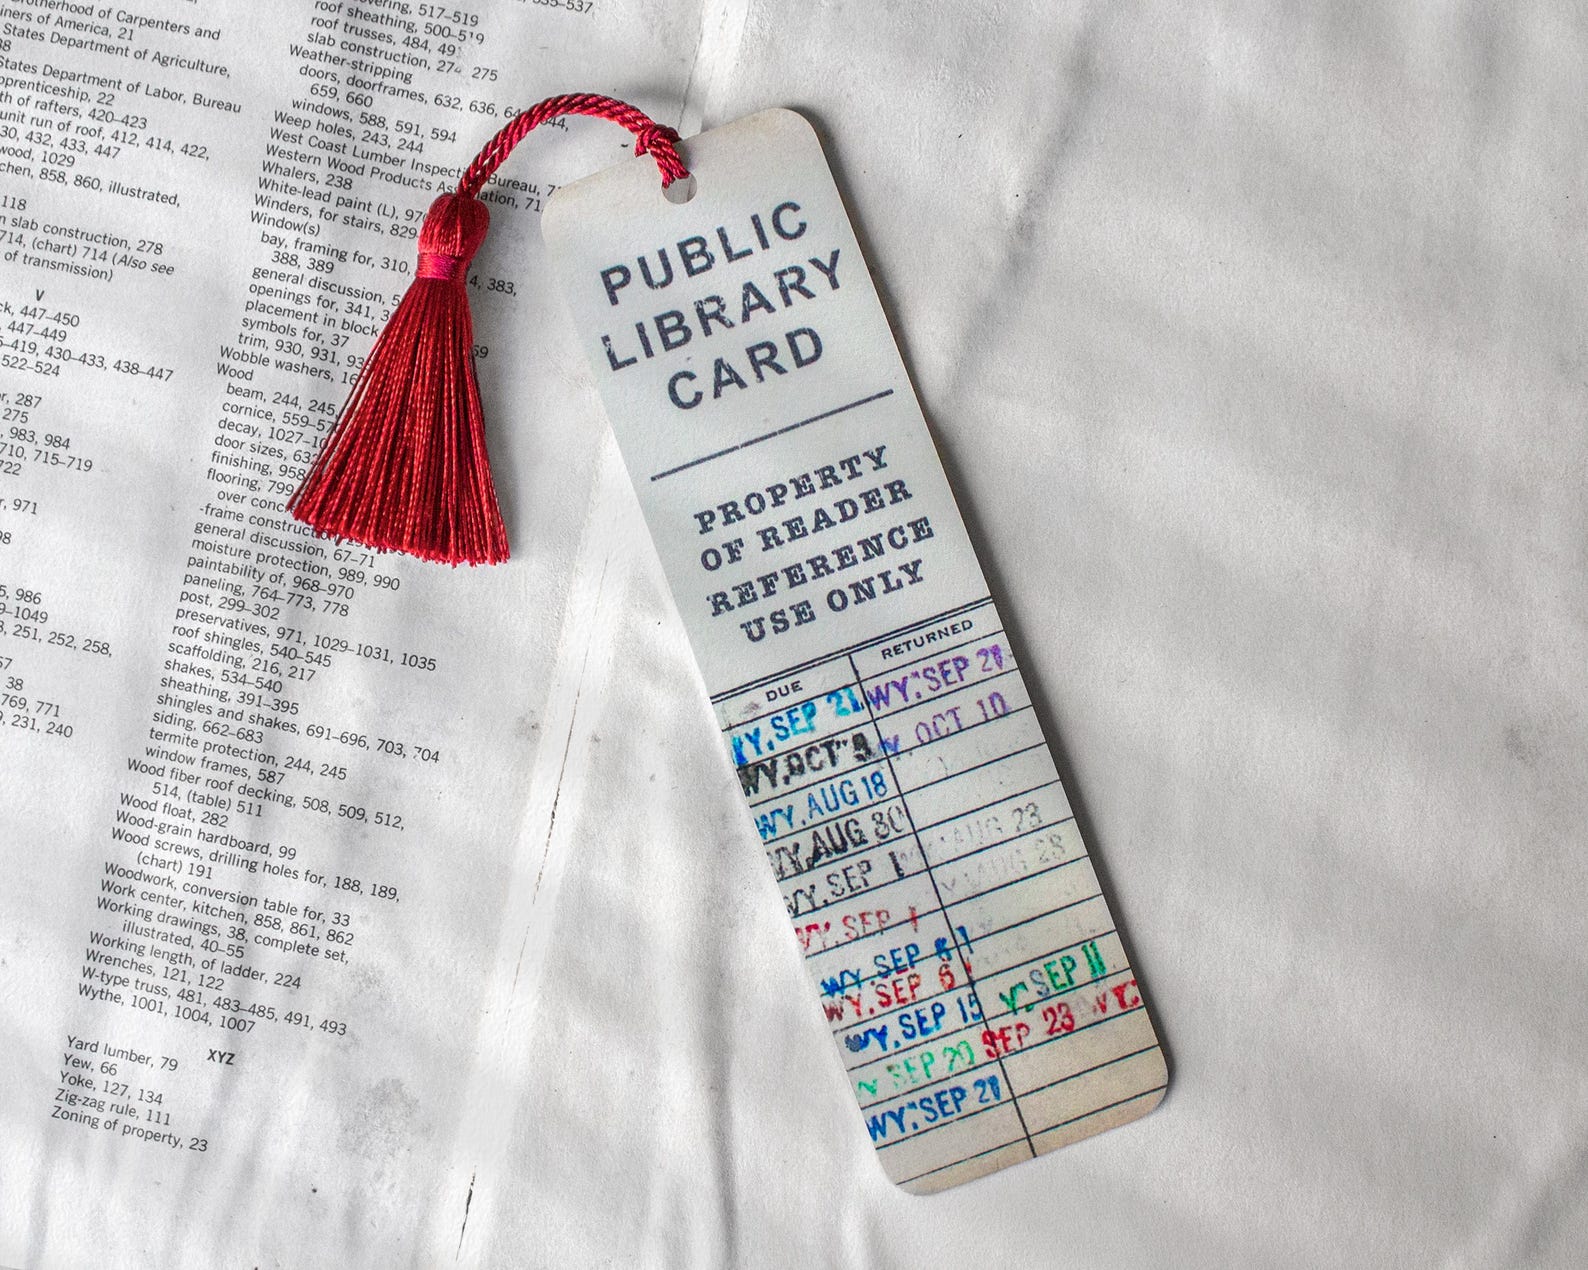 Brotherhood of Carpenters and
ners of America, 21
States Department of Agriculture,
38
States Department of Labor, Bureau
pprenticeship, 22
th of rafters, 420–423
unit run of roof, 412, 414, 422,
30, 432, 433, 447
wood, 1029
chen, 858, 860, illustrated,
118
n slab construction, 278
714, (chart) 714 (Also see
of transmission)
V
ck, 447–450
, 447–449
5–419, 430–433, 438–447
522–524
r, 287
275
, 983, 984
710, 715–719
722
r, 971
98
5, 986
9–1049
3, 251, 252, 258,
57
38
769, 771
9, 231, 240
overing, 517–519
roof sheathing, 500–519
roof trusses, 484, 49
slab construction, 274, 275
Weather-stripping
doors, doorframes, 632, 636, 64 644,
659, 660
windows, 588, 591, 594
Weep holes, 243, 244
West Coast Lumber Inspecti Bureau, 7
Western Wood Products Ass iation, 71
Whalers, 238
White-lead paint (L), 970
Winders, for stairs, 829
Window(s)
bay, framing for, 310, 4, 383,
388, 389
general discussion, 5
openings for, 341, 3
placement in block
symbols for, 37
trim, 930, 931, 93 59
Wobble washers, 16
Wood
beam, 244, 245,
cornice, 559–57
decay, 1027–10
door sizes, 632
finishing, 958
flooring, 799
over conc
-frame construct
general discussion, 67–71
moisture protection, 989, 990
paintability of, 968–970
paneling, 764–773, 778
post, 299–302
preservatives, 971, 1029–1031, 1035
roof shingles, 540–545
scaffolding, 216, 217
shakes, 534–540
sheathing, 391–395
shingles and shakes, 691–696, 703, 704
siding, 662–683
termite protection, 244, 245
window frames, 587
Wood fiber roof decking, 508, 509, 512,
514, (table) 511
Wood float, 282
Wood-grain hardboard, 99
Wood screws, drilling holes for, 188, 189,
(chart) 191
Woodwork, conversion table for, 33
Work center, kitchen, 858, 861, 862
Working drawings, 38, complete set,
illustrated, 40–55
Working length, of ladder, 224
Wrenches, 121, 122
W-type truss, 481, 483–485, 491, 493
Wythe, 1001, 1004, 1007
XYZ
Yard lumber, 79
Yew, 66
Yoke, 127, 134
Zig-zag rule, 111
Zoning of property, 23
PUBLIC
LIBRARY
CARD
PROPERTY
OF READER
REFERENCE
USE ONLY
DUE RETURNED
WY. SEP 21 WY. SEP 21
WY. OCT 9 Y. OCT 10
WY. AUG 18
WY. AUG 30
WY. SEP 1 AUG 23
WY. SEP 1 AUG 28
WY. SEP 6
WY. SEP 6
WY. SEP 15 Y. SEP 11
SEP 20 SEP 23 WY.
WY. SEP 21